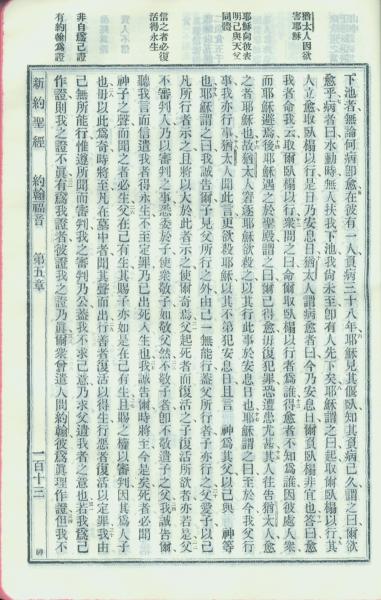 猶太人因欲
害耶穌
耶穌向彼表
明己與天父
同體
信之者必復
活得永生
非自爲己證
有約翰爲證
下池者無論何病卽愈在彼有一人負病三十八年耶穌見其偃臥知其負病已久謂之曰爾欲
愈乎病者曰水動時無人扶我下池我尙未至卽有人先下矣耶穌謂之曰起取爾臥榻以行其
人立愈取臥榻以行是日乃安息日猶太人謂病愈者曰今乃安息日爾負臥榻非宜也答曰愈
我者命我云取爾臥榻以行衆問之曰命爾取臥榻以行者爲誰得愈者不知爲誰因彼處人衆
而耶穌避焉後耶穌遇之於聖殿謂之曰爾已得愈毋復犯罪恐遭患尤甚其人往告猶太人愈
之者耶穌也故猶太人窘逐耶穌欲殺之以其行此事於安息日也耶穌謂之曰至於今我父行
事我亦行事猶太人聞此言更欲殺耶穌以其不第犯安息日且言 神爲其父以己與 神等
也耶穌謂之曰我誠告爾子見父所行之外由己一無能行蓋父所行者子亦行之父愛子以己
凡所行者示之且將以大於此者示之使爾奇焉父起死者而復活之子復活所欲者亦若是父
不審判人乃以審判之事悉委於子使衆敬子如敬父然不敬子者卽不敬遣子之父我誠告爾
聽我言而信遣我者得永生不至定罪乃已出死入生也我誠告爾時將至今是矣死者必聞
神子之聲而聞之者必生父在己有生其賜子亦如是在己有生且賜之權以審判因其爲人子
也毋以此爲奇時將至凡在墓中者聞其聲而出行善者復活以得生行惡者復活以定罪我由
己無所能行惟遵所聞而審判我之審判乃公蓋我不求己意乃求父遣我者之意也若我爲己
作證則我之證不眞有爲我證者彼證我之證乃眞爾衆曾遣人問約翰彼爲眞理作證但我不
新約聖經 約翰福音 第五章 一百十三